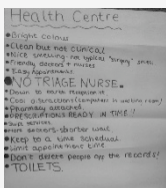 Health Centre
• Bright colour
• Clean but not clinical
• Nice smelling - not typical "empty" smell
• Friendly doctors + nurses
• Easy appointments
• NO TRIAGE NURSE.
• Down to earth receptionist
• Cool distractions (computers in waiting room)
• Pharmacy attached
• PRESCRIPTIONS READY IN TIME?
• services
• doctors shorter wait
• Keep to a time schedule
• Limit appointment time
• Don't delete peoples the records!
• TOILETS.